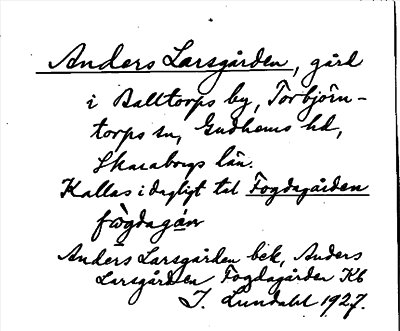 Anders Larsgården, gård
i Balltorps by, Torbjörn-
torps sn, Gudhems hd,
Skaraborgs län.
Kallas i dagligt tal Fogdagården
fògdagán
Anders Larsgården bek, Anders
Larsgården Fogdagården Kb
I. Lundahl 1927.